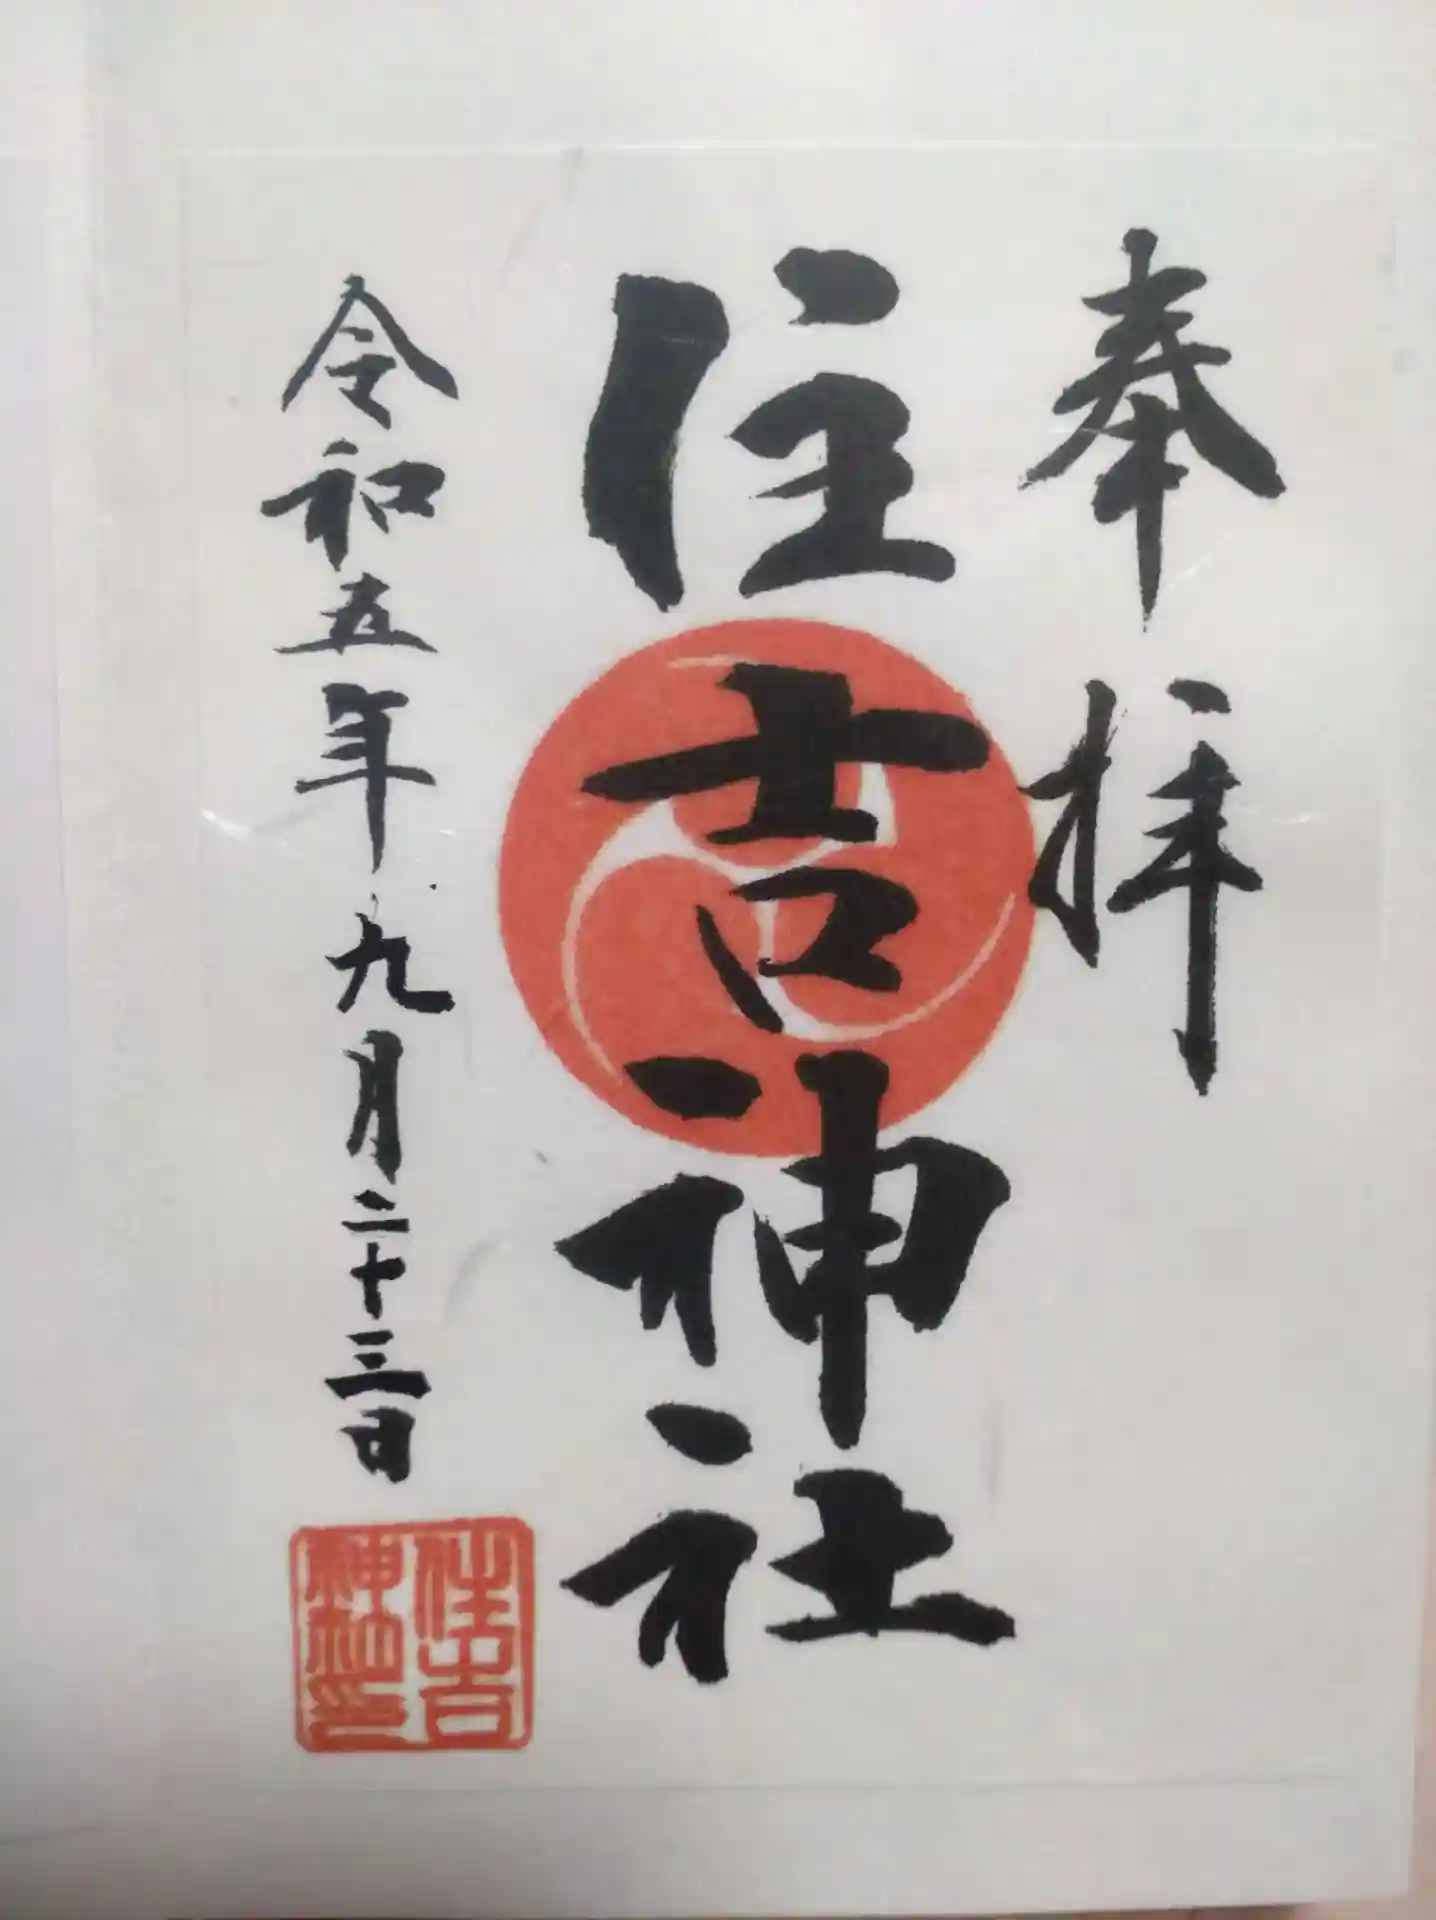 奉拝
住吉神社
令和五年九月二十三日
住吉
神社印